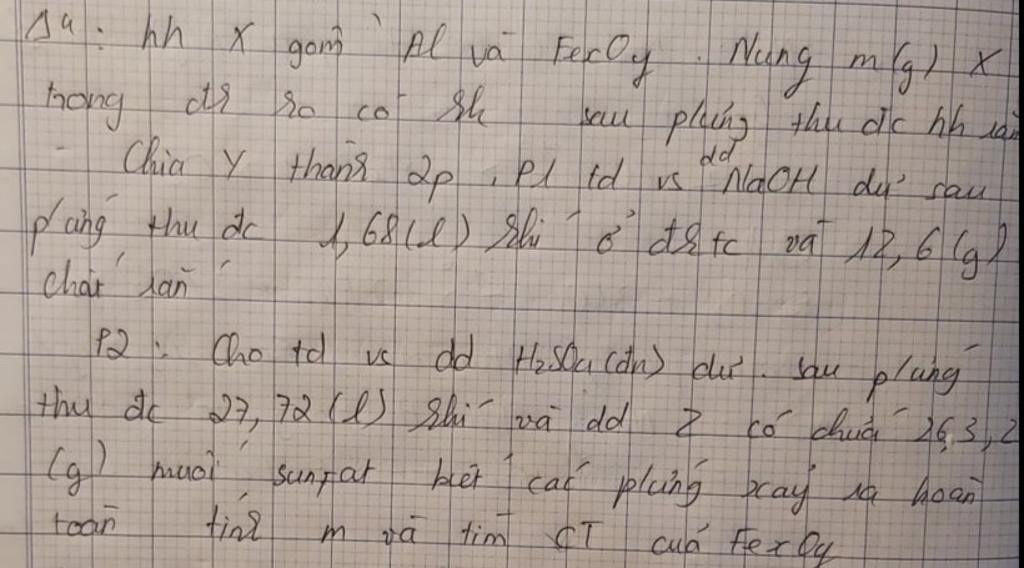 Δ4: hh X gồm Al và FexOy. Nung m(g) X
trong đk ko có kk sau pứng thu đc hh rắn
- Chia Y thành 2p. P1 td vs dd NaOH dư sau
pứng thu đc 1,68(l) khí ở đktc và 12,6(g)
chất rắn
P2: Cho td vs dd H2SO4(đn) dư. sau pứng
thu đc 27,72(l) khí và dd Z có chứa 263,2
(g) muối sunfat biết các pứng xảy ra hoàn
toàn tính m và tìm CT của FexOy